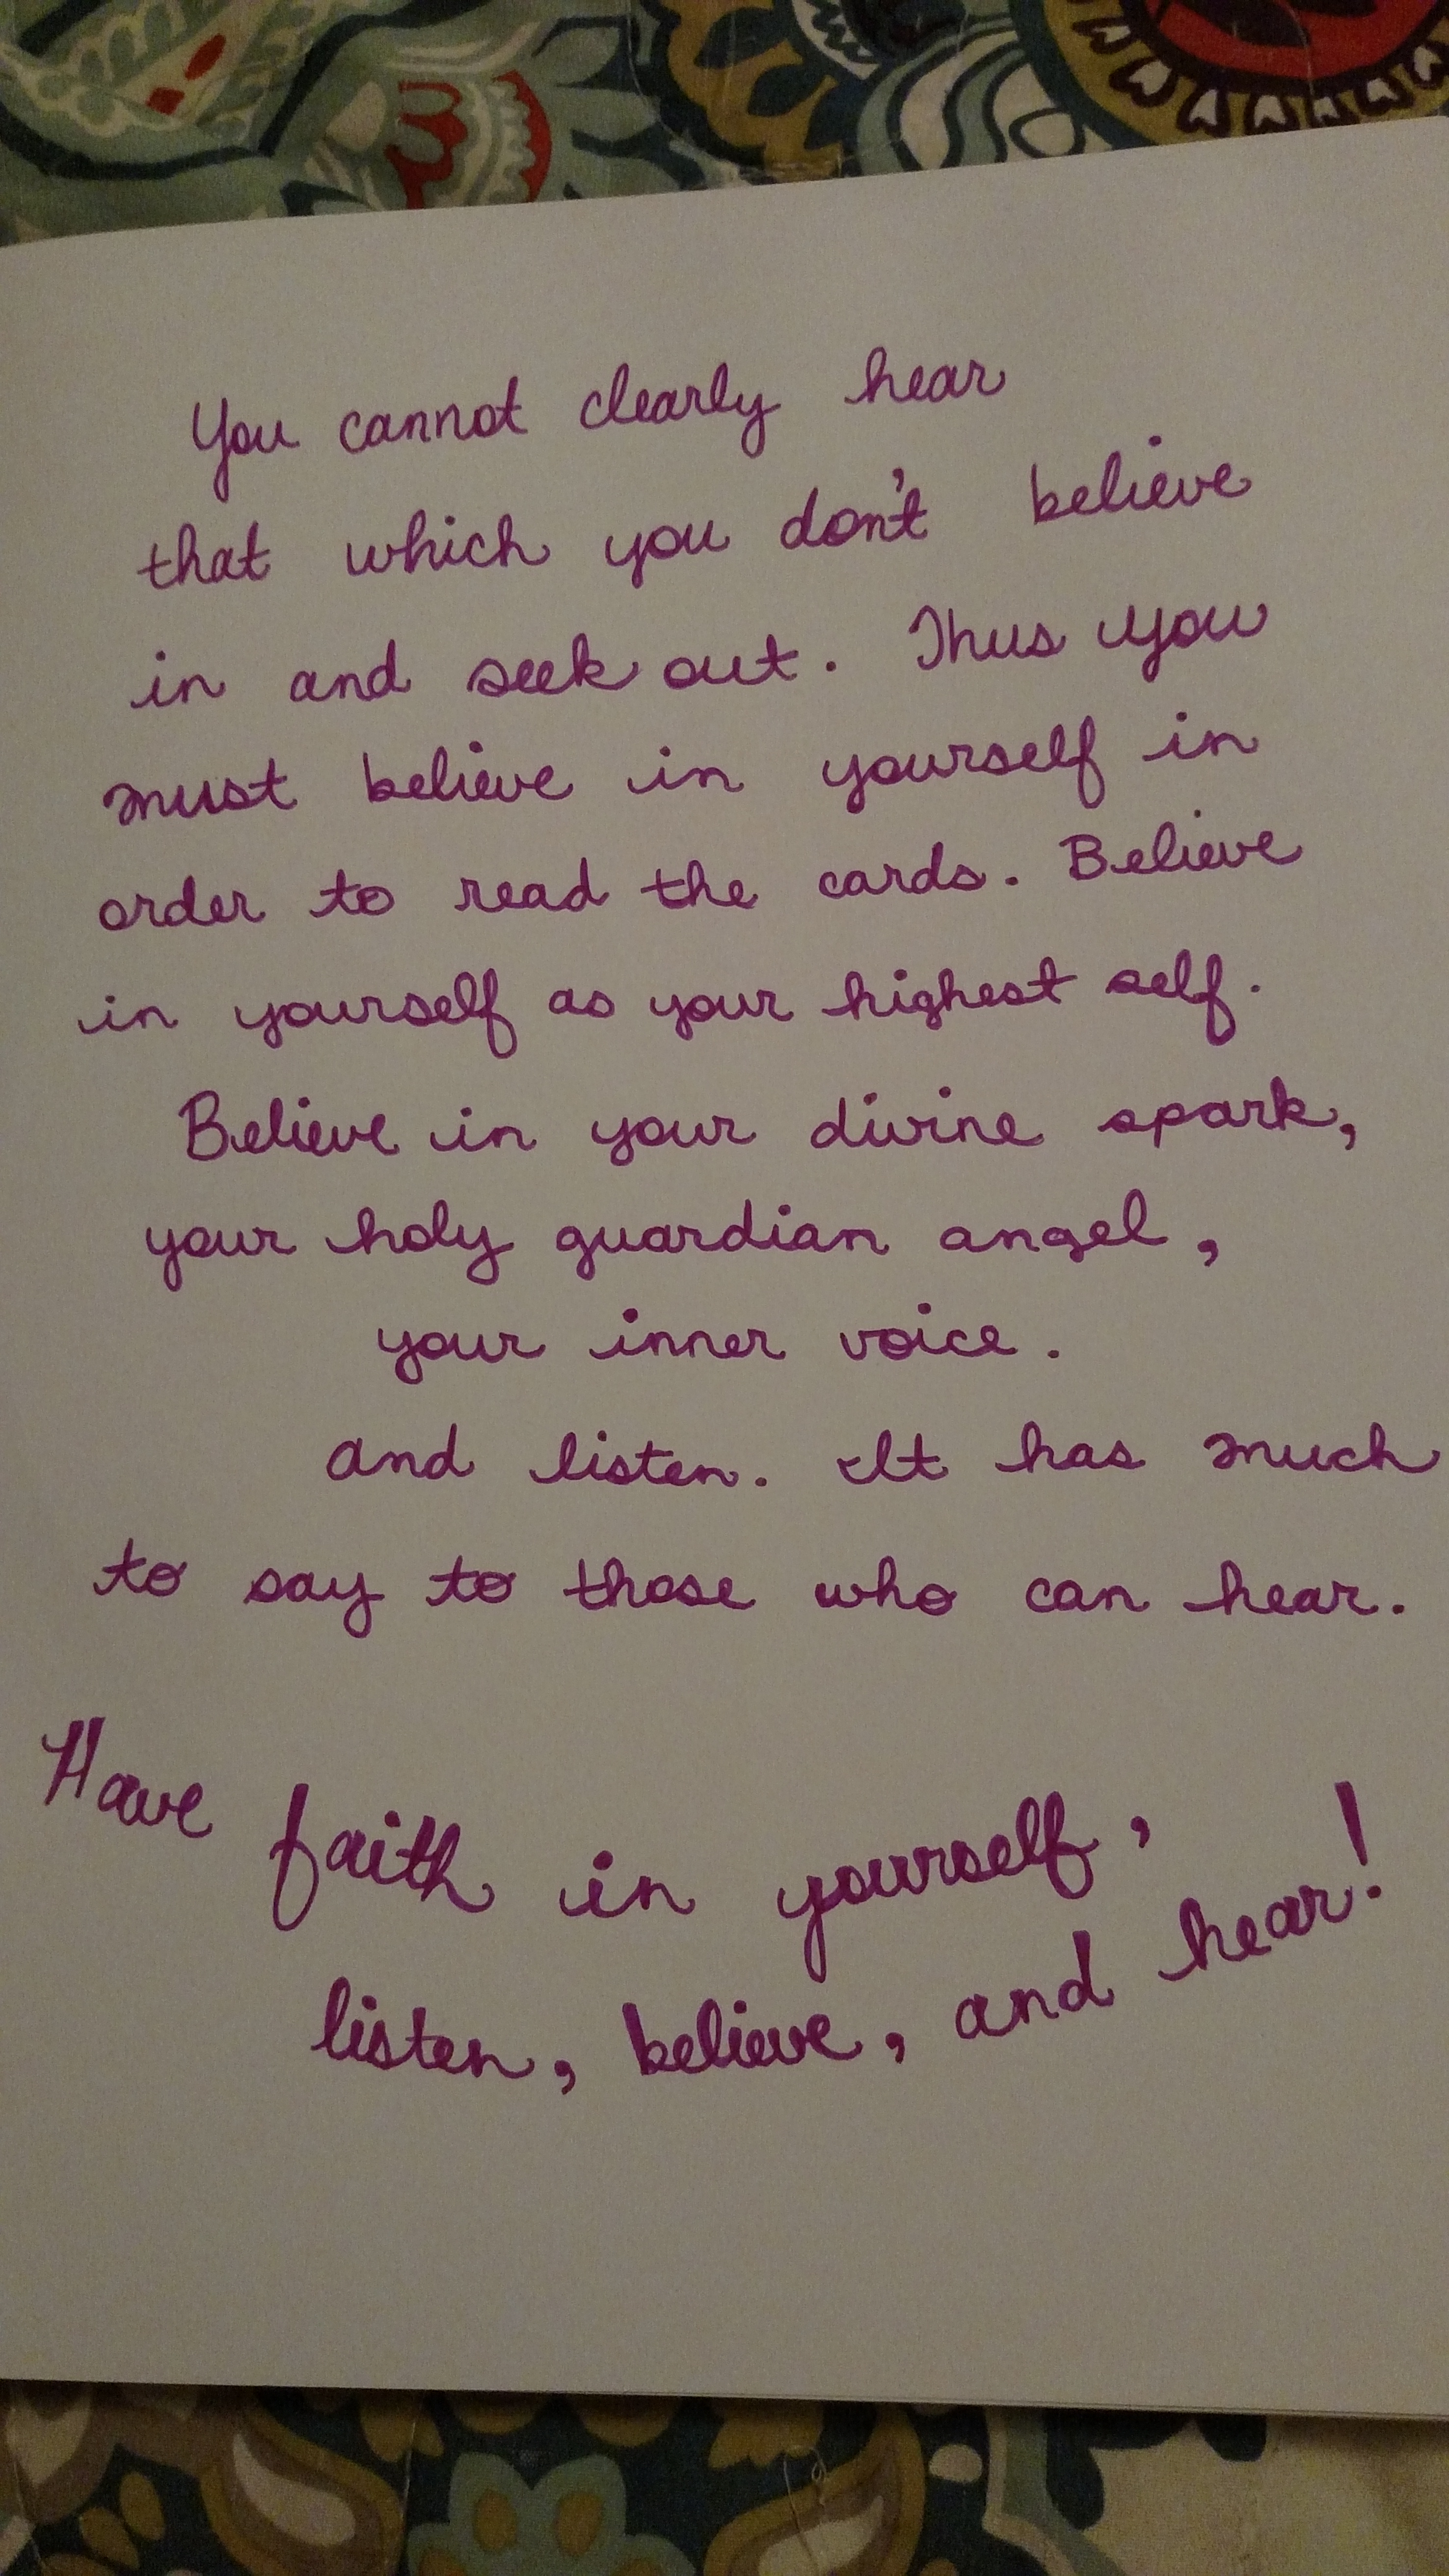 You cannot clearly hear
that which you don't believe
in and seek out. Thus you
must believe in yourself in
order to read the cards. Believe
in yourself as your highest self.
Believe in your divine spark,
your holy guardian angel,
your inner voice.
and listen. It has much
to say to those who can hear.
Have faith in yourself,
listen, believe, and hear!